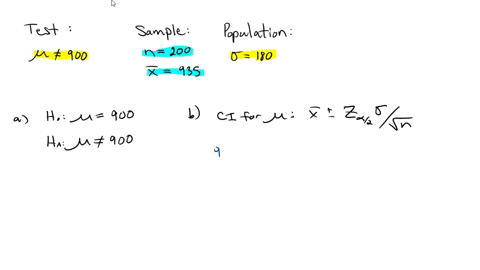 Test: Sample: Population:
μ ≠ 900 n = 200 σ = 180
x̄ = 935
a) H₀: μ = 900 b) CI for μ: x̄ ± Z_α/2 σ/√n
H_A: μ ≠ 900
9